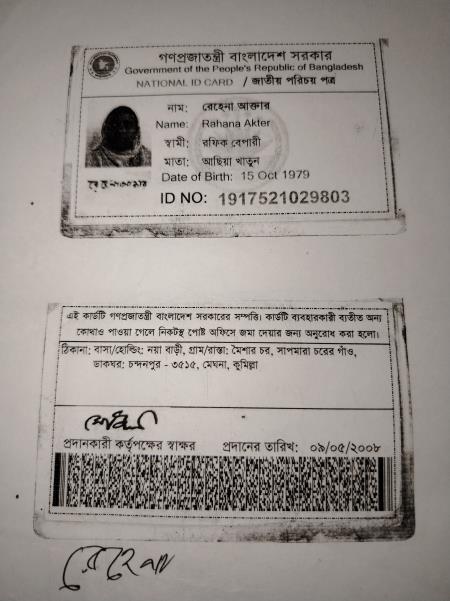 গণপ্রজাতন্ত্রী বাংলাদেশ সরকার
Government of the People's Republic of Bangladesh
NATIONAL ID CARD / জাতীয় পরিচয় পত্র
নাম: রেহেনা আক্তার
Name: Rahana Akter
স্বামী: রফিক বেপারী
মাতা: আছিয়া খাতুন
Date of Birth: 15 Oct 1979
ID NO: 1917521029803
এই কার্ডটি গণপ্রজাতন্ত্রী বাংলাদেশ সরকারের সম্পত্তি। কার্ডটি ব্যবহারকারী ব্যতীত অন্য
কোথাও পাওয়া গেলে নিকটস্থ পোষ্ট অফিসে জমা দেয়ার জন্য অনুরোধ করা হলো।
ঠিকানা: বাসা/হোল্ডিং: নয়া বাড়ী, গ্রাম/রাস্তা: মৈশার চর, সাপমারা চরের গাঁও,
ডাকঘর: চন্দনপুর - ৩৫১৫, মেঘনা, কুমিল্লা
প্রদানকারী কর্তৃপক্ষের স্বাক্ষর প্রদানের তারিখ: ০৯/০৫/২০০৮